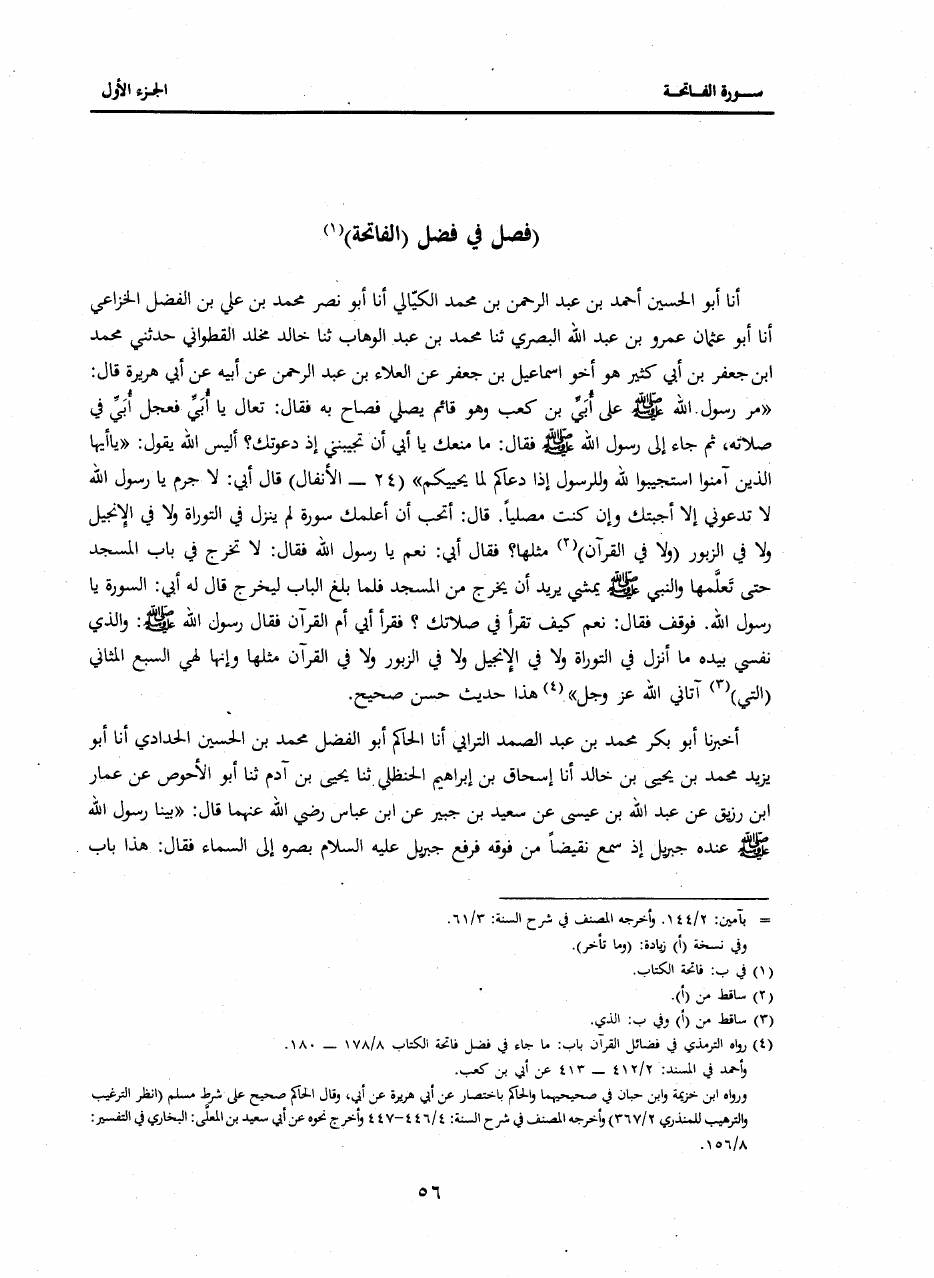 سورة الفاتحة
الجزء الأول
(فصل في فضل (الفاتحة)(١)
أنا أبو الحسين أحمد بن عبد الرحمن بن محمد الكيّالي أنا أبو نصر محمد بن علي بن الفضل الخزاعي
أنا أبو عثمان عمرو بن عبد الله البصري ثنا محمد بن عبد الوهاب ثنا خالد مخلد القطواني حدثني محمد
ابن جعفر بن أبي كثير هو أخو اسماعيل بن جعفر عن العلاء بن عبد الرحمن عن أبيه عن أبي هريرة قال:
«مر رسول الله ﷺ على أُبَيِّ بن كعب وهو قائم يصلي فصاح به فقال: تعال يا أُبَيِّ فعجل أُبَيِّ في
صلاته، ثم جاء إلى رسول الله ﷺ فقال: ما منعك يا أبي أن تجيبني إذ دعوتك؟ أليس الله يقول: «ياأيها
الذين آمنوا استجيبوا لله وللرسول إذا دعاكم لما يحييكم» (٢٤ — الأنفال) قال أبي: لا جرم يا رسول الله
لا تدعوني إلا أجبتك وإن كنت مصلياً. قال: أتحب أن أعلمك سورة لم ينزل في التوراة ولا في الإنجيل
ولا في الزبور (ولا في القرآن)(٢) مثلها؟ فقال أبي: نعم يا رسول الله فقال: لا تخرج في باب المسجد
حتى تَعلَّمها والنبي ﷺ يمشي يريد أن يخرج من المسجد فلما بلغ الباب ليخرج قال له أبي: السورة يا
رسول الله. فوقف فقال: نعم كيف تقرأ في صلاتك ؟ فقرأ أبي أم القرآن فقال رسول الله ﷺ: والذي
نفسي بيده ما أنزل في التوراة ولا في الإنجيل ولا في الزبور ولا في القرآن مثلها وإنها لهي السبع المثاني
(التي)(٣) آتاني الله عز وجل»(٤) هذا حديث حسن صحيح.
أخبرنا أبو بكر محمد بن عبد الصمد الترابي أنا الحاكم أبو الفضل محمد بن الحسين الحدادي أنا أبو
يزيد محمد بن يحيى بن خالد أنا إسحاق بن إبراهيم الحنظلي ثنا يحيى بن آدم ثنا أبو الأحوص عن عمار
ابن رزيق عن عبد الله بن عيسى عن سعيد بن جبير عن ابن عباس رضي الله عنهما قال: «بينا رسول الله
ﷺ عنده جبريل إذ سمع نقيضاً من فوقه فرفع جبريل عليه السلام بصره إلى السماء فقال: هذا باب
= بآمين: ١٤٤/٢. وأخرجه المصنف في شرح السنة: ٦١/٣.
وفي نسخة (أ) زيادة: (وما تأخر).
(١) في ب: فاتحة الكتاب.
(٢) ساقط من (أ).
(٣) ساقط من (أ) وفي ب: الذي.
(٤) رواه الترمذي في فضائل القرآن باب: ما جاء في فضل فاتحة الكتاب ١٧٨/٨ — ١٨٠.
وأحمد في المسند: ٤١٢/٢ — ٤١٣ عن أبي بن كعب.
ورواه ابن خزيمة وابن حبان في صحيحيهما والحاكم باختصار عن أبي هريرة عن أبي، وقال الحاكم صحيح على شرط مسلم (انظر الترغيب
والترهيب للمنذري ٣٦٧/٢) وأخرجه المصنف في شرح السنة: ٤٤٦/٤–٤٤٧ وأخرج نحوه عن أبي سعيد بن المعلَّى: البخاري في التفسير:
١٥٦/٨.
٥٦